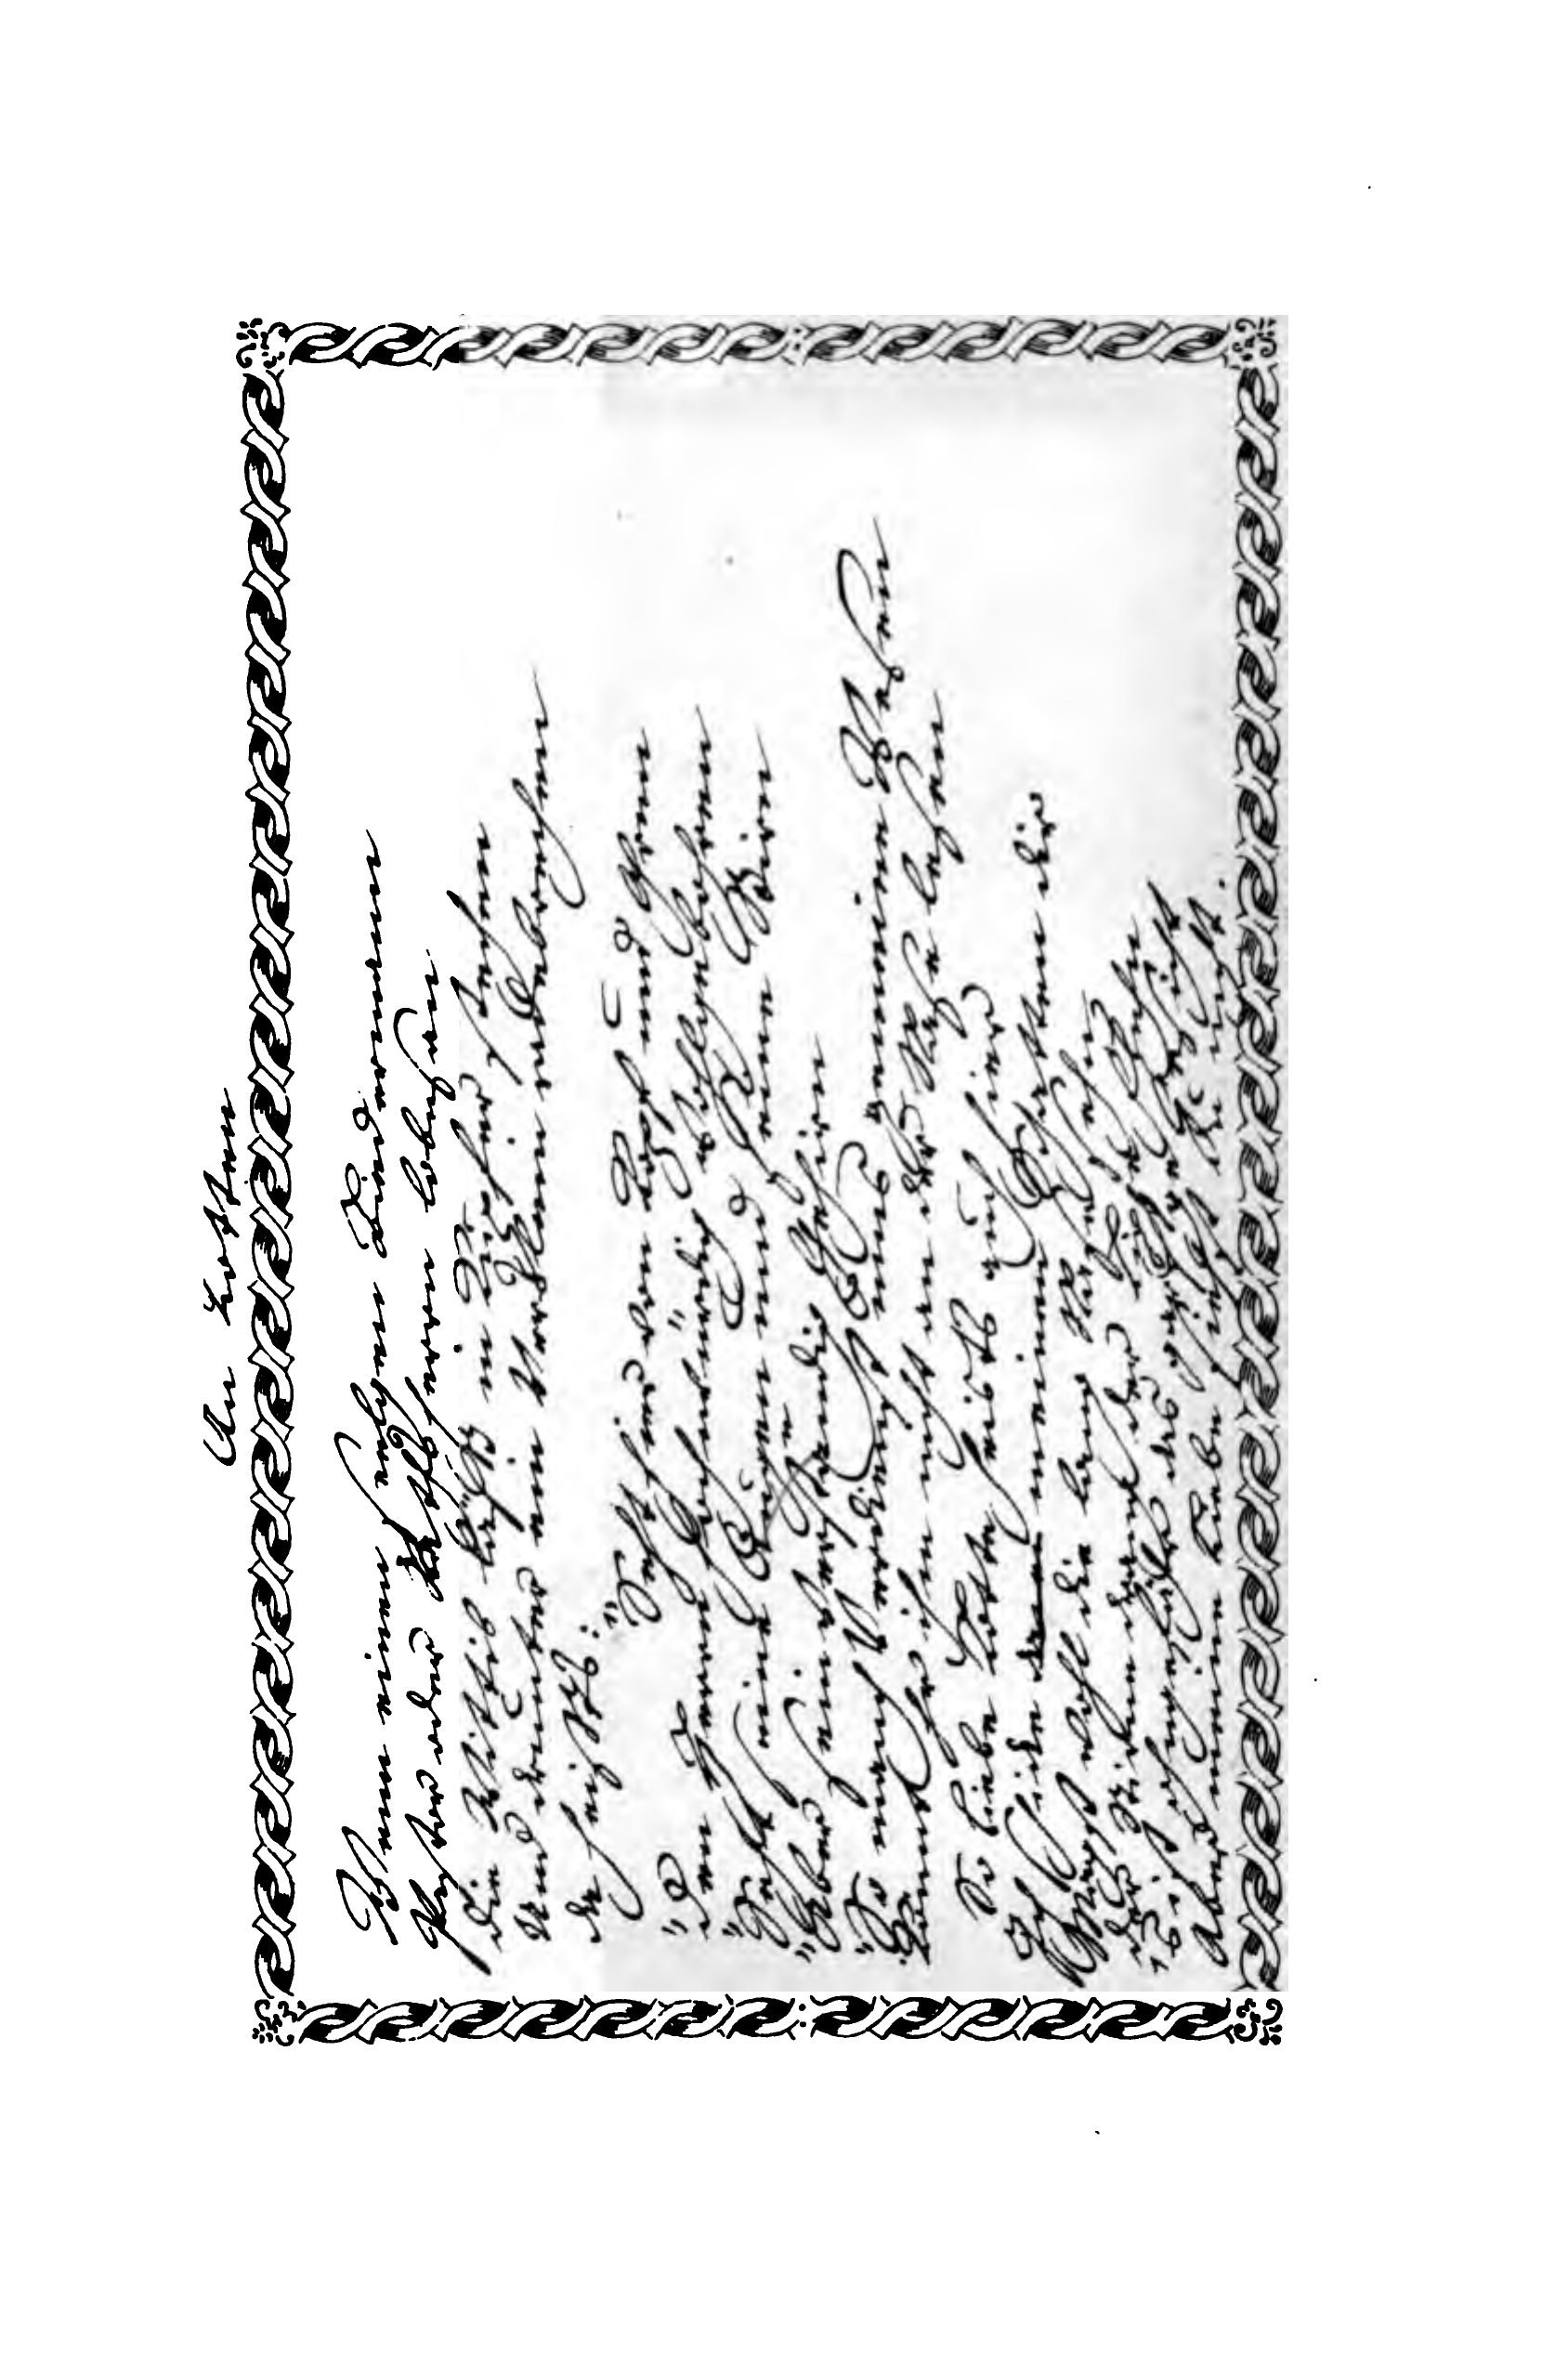 An Lotten
Wenn einem seelgen Biedermann
Pastor oder Rathsherrn lobesan.
Die Wittib läßt in Kupfer stechen
Und drunter ein Verslein radebrechen
da heißts:
"Seht hier von Kopf und Ohren
"Den Herrn Ehrwürdig, wohlgebohren
"Seht seine Augen und seine Stirn
"Aber sein verständig Gehirn
"So manch Verdienst ums gemeine Wesen
Könnt ihr ihm nicht an der Nase lesen
So liebe Lotte heists auch hier
Ich schicke meinen Schatten dir
Magst wohl die lange Nase sehn
Der Stirne Drang der Lippe Flehn
's ist ohngefähr das garstge Gesicht
Aber meine Liebe siehst du nicht.